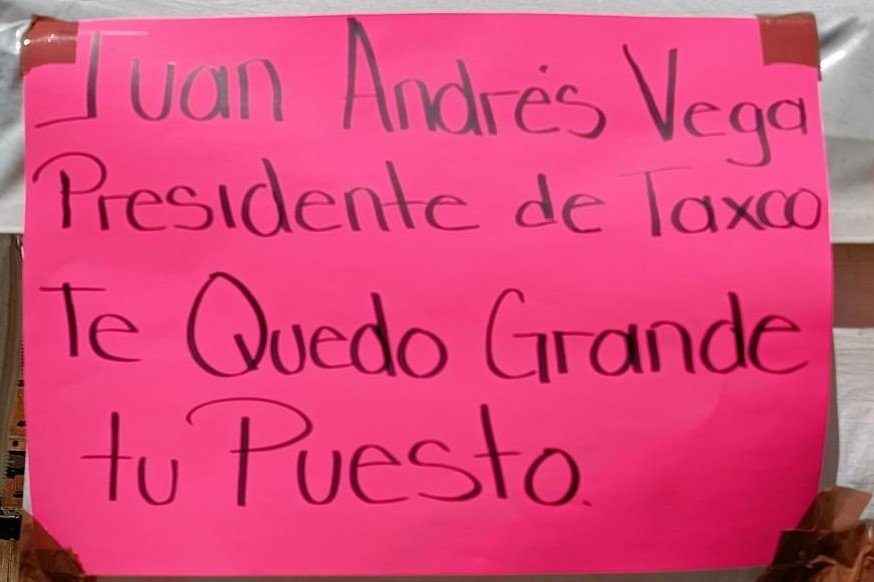 Juan Andrés Vega
Presidente de Taxco
Te Quedo Grande
tu Puesto.